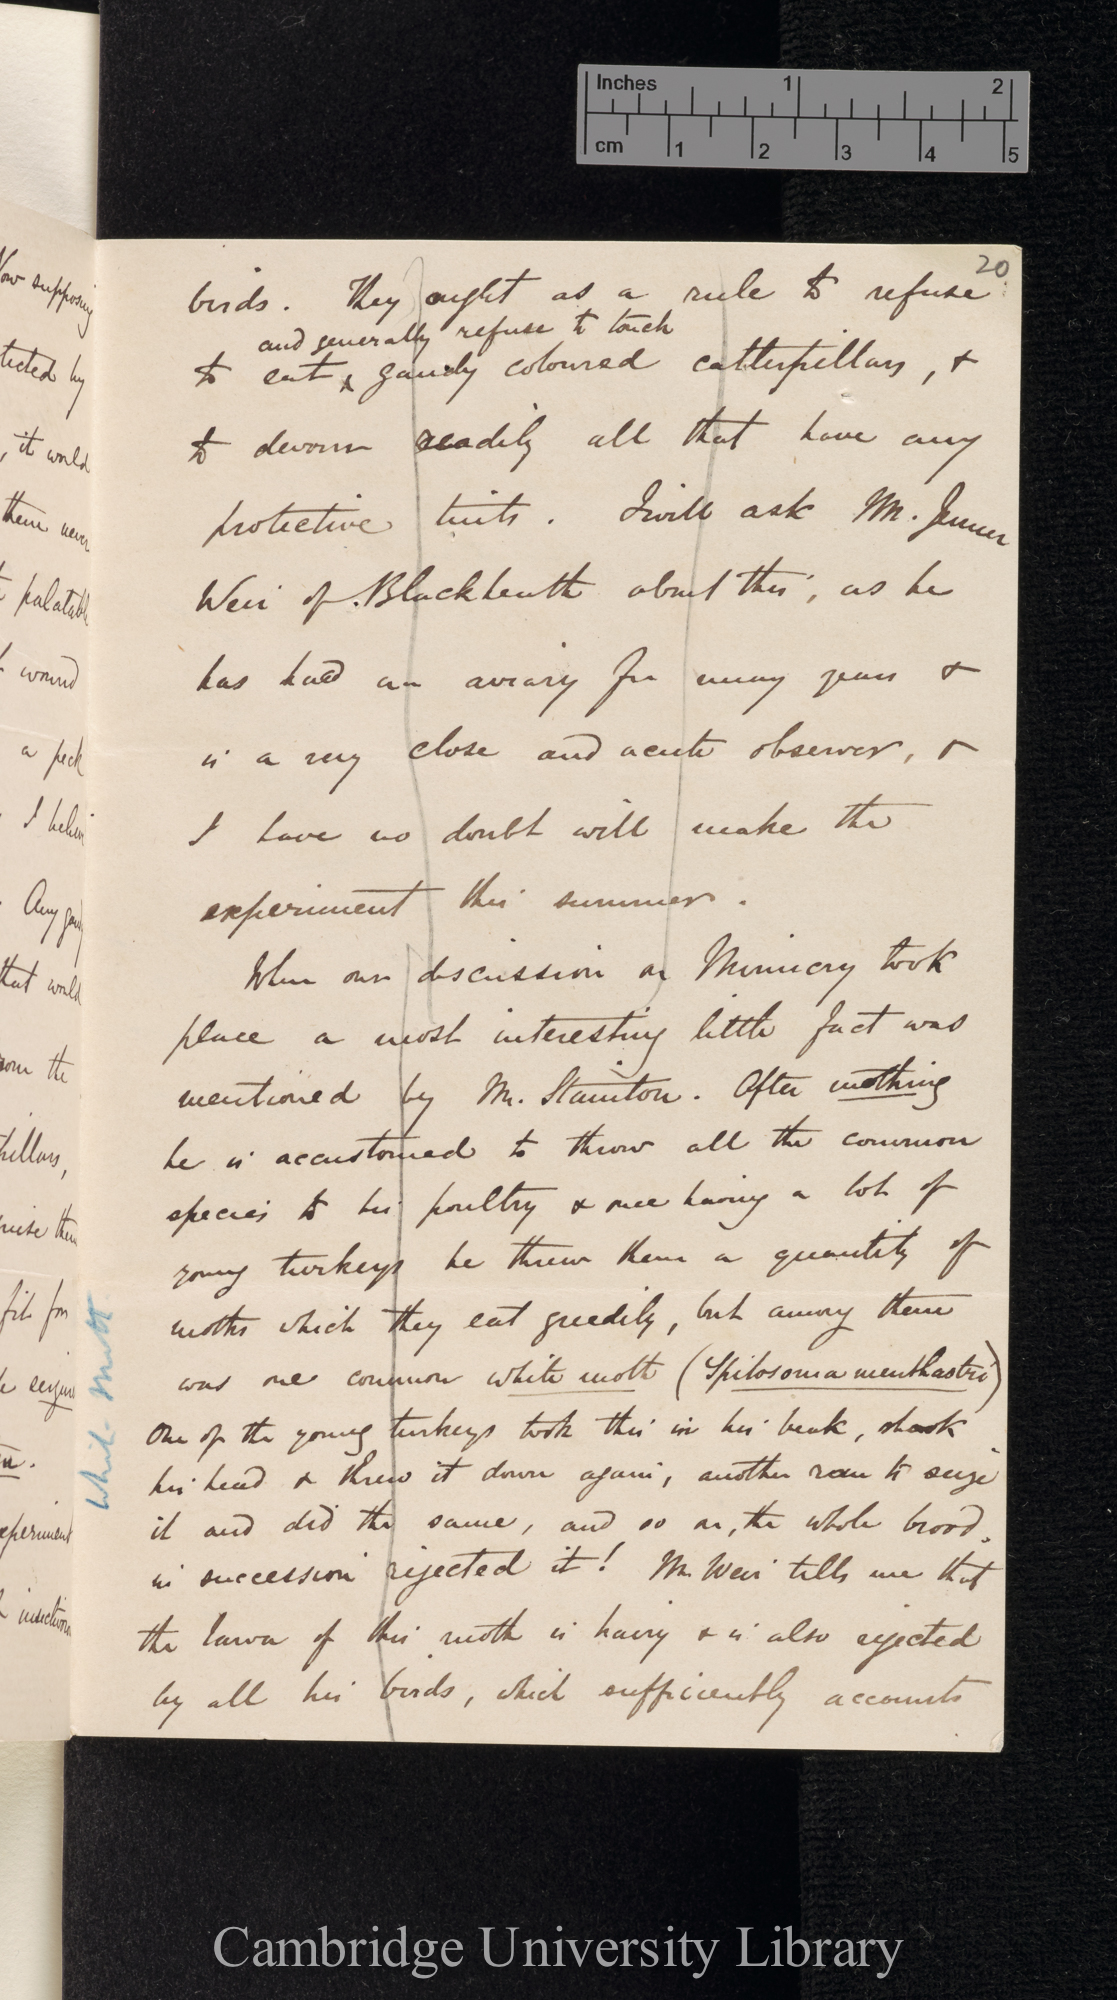 Inches 1 2
cm 1 2 3 4 5
20
birds. They ought as a rule to refuse
and generally refuse to touch
to eat gaudy coloured catterpillars, &
to devour readily all that have any
protective tints. I will ask Mr. Jenner
Weir of Blackheath about this, as he
has had an aviary for many years &
is a very close and acute observer, &
I have no doubt will make the
experiment this summer.
When our discussion on Mimicry took
place a most interesting little fact was
mentioned by Mr. Stainton. After mothing
he is accustomed to throw all the common
species to his poultry & once having a lot of
young turkeys he threw them a quantity of
moths which they eat greedily, but among them
was one common white moth (Spilosoma menthastri)
One of the young turkeys took this in his beak, shook
his head & threw it down again, another ran to seize
it and did the same, and so on, the whole brood
in succession rejected it! Mr Weir tells me that
the larva of this moth is hairy & is also rejected
by all his birds, which sufficiently accounts
White Moth
Now supposing
tected by
, it would
them never
palatable
wound
a peck
I believe
Any gaudy
that would
from the
pillars,
them
fit for
seizing
experiment
Cambridge University Library